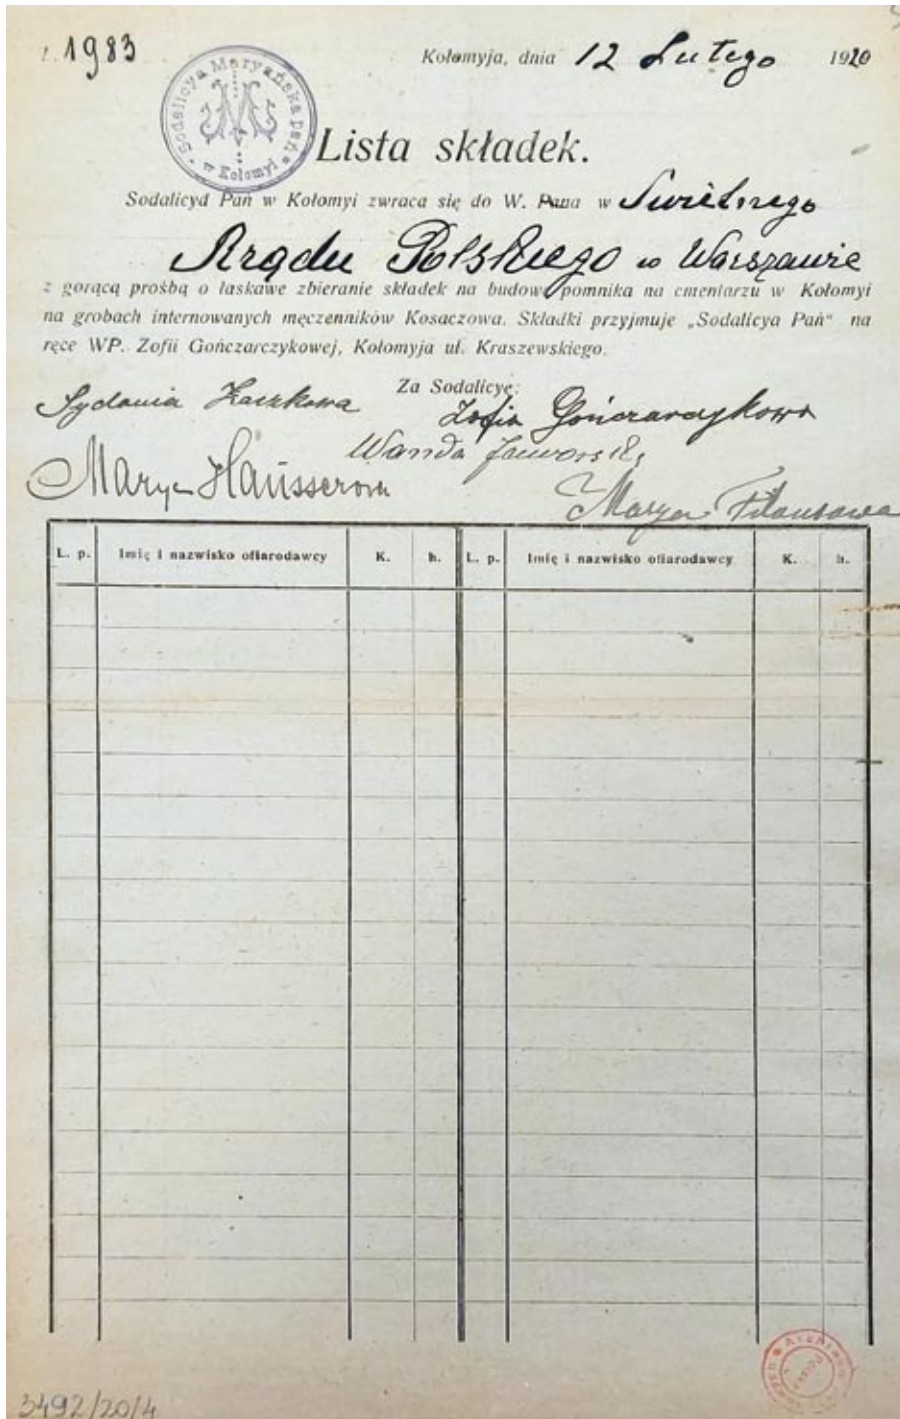 L. 1983
Kołomyja, dnia 12 Lutego 1920
Sodalicya Maryańska pań w Kołomyi
Lista składek.
Sodalicyd Pań w Kołomyi zwraca się do W. Pana w Świetnego
Rządu Polskiego w Warszawie
z gorącą prośbą o łaskawe zbieranie składek na budowę pomnika na cmentarzu w Kołomyi
na grobach internowanych męczenników Kosaczowa. Składki przyjmuje „Sodalicya Pań" na
ręce WP. Zofii Gończarczykowej, Kołomyja ul. Kraszewskiego.
Za Sodalicyę:
Zofia Gończarczykowa
Wanda
Marya Haüsserowa
Marya
L. p. Imię i nazwisko ofiarodawcy K. h. L. p. Imię i nazwisko ofiarodawcy K. h.
3492/20/4